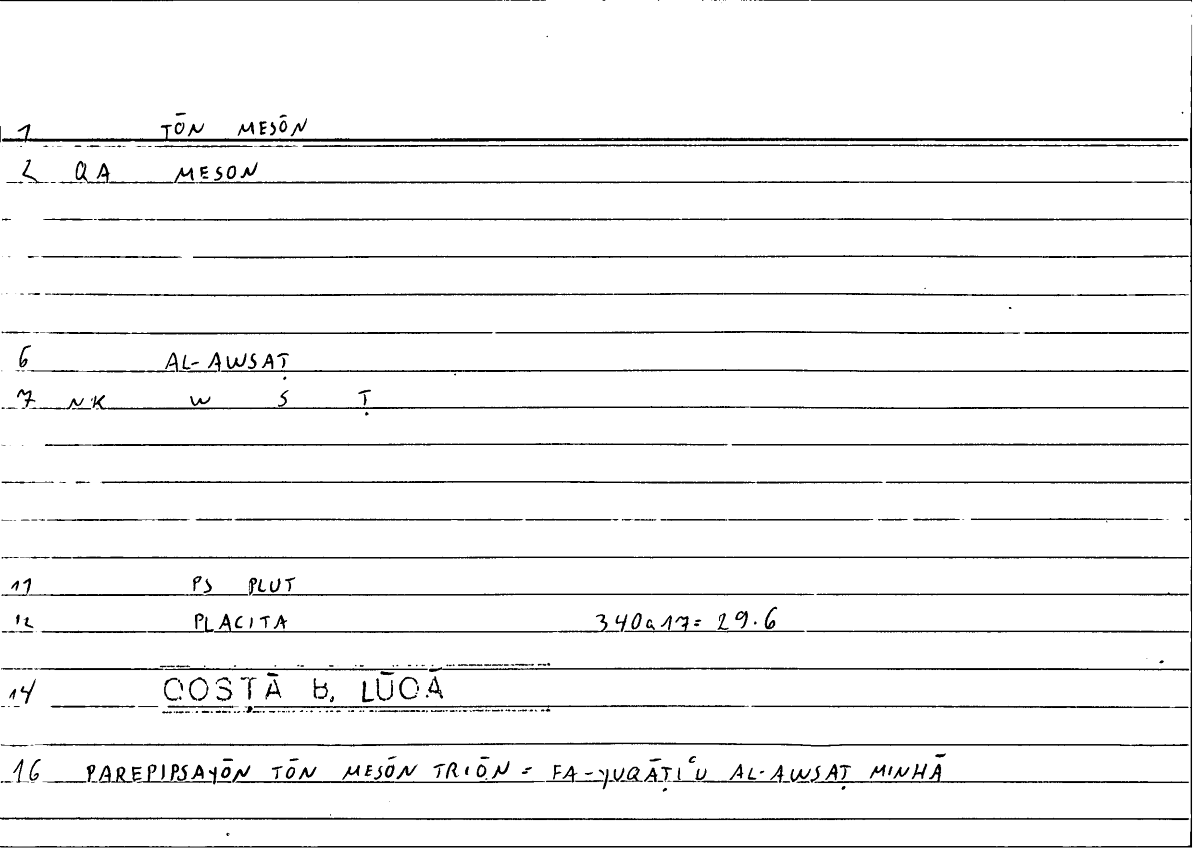 1 TŌN MESŌN
2 QA MESON
6 AL-AWSAṬ
7 NK W S Ṭ
11 PS PLUT
12 PLACITA 340a17= 29.6
14 QOSṬĀ B. LŪQĀ
16 PAREPIPSAYŌN TŌN MESŌN TRIŌN = FA-YUQĀṬIʿU AL-AWSAṬ MINHĀ